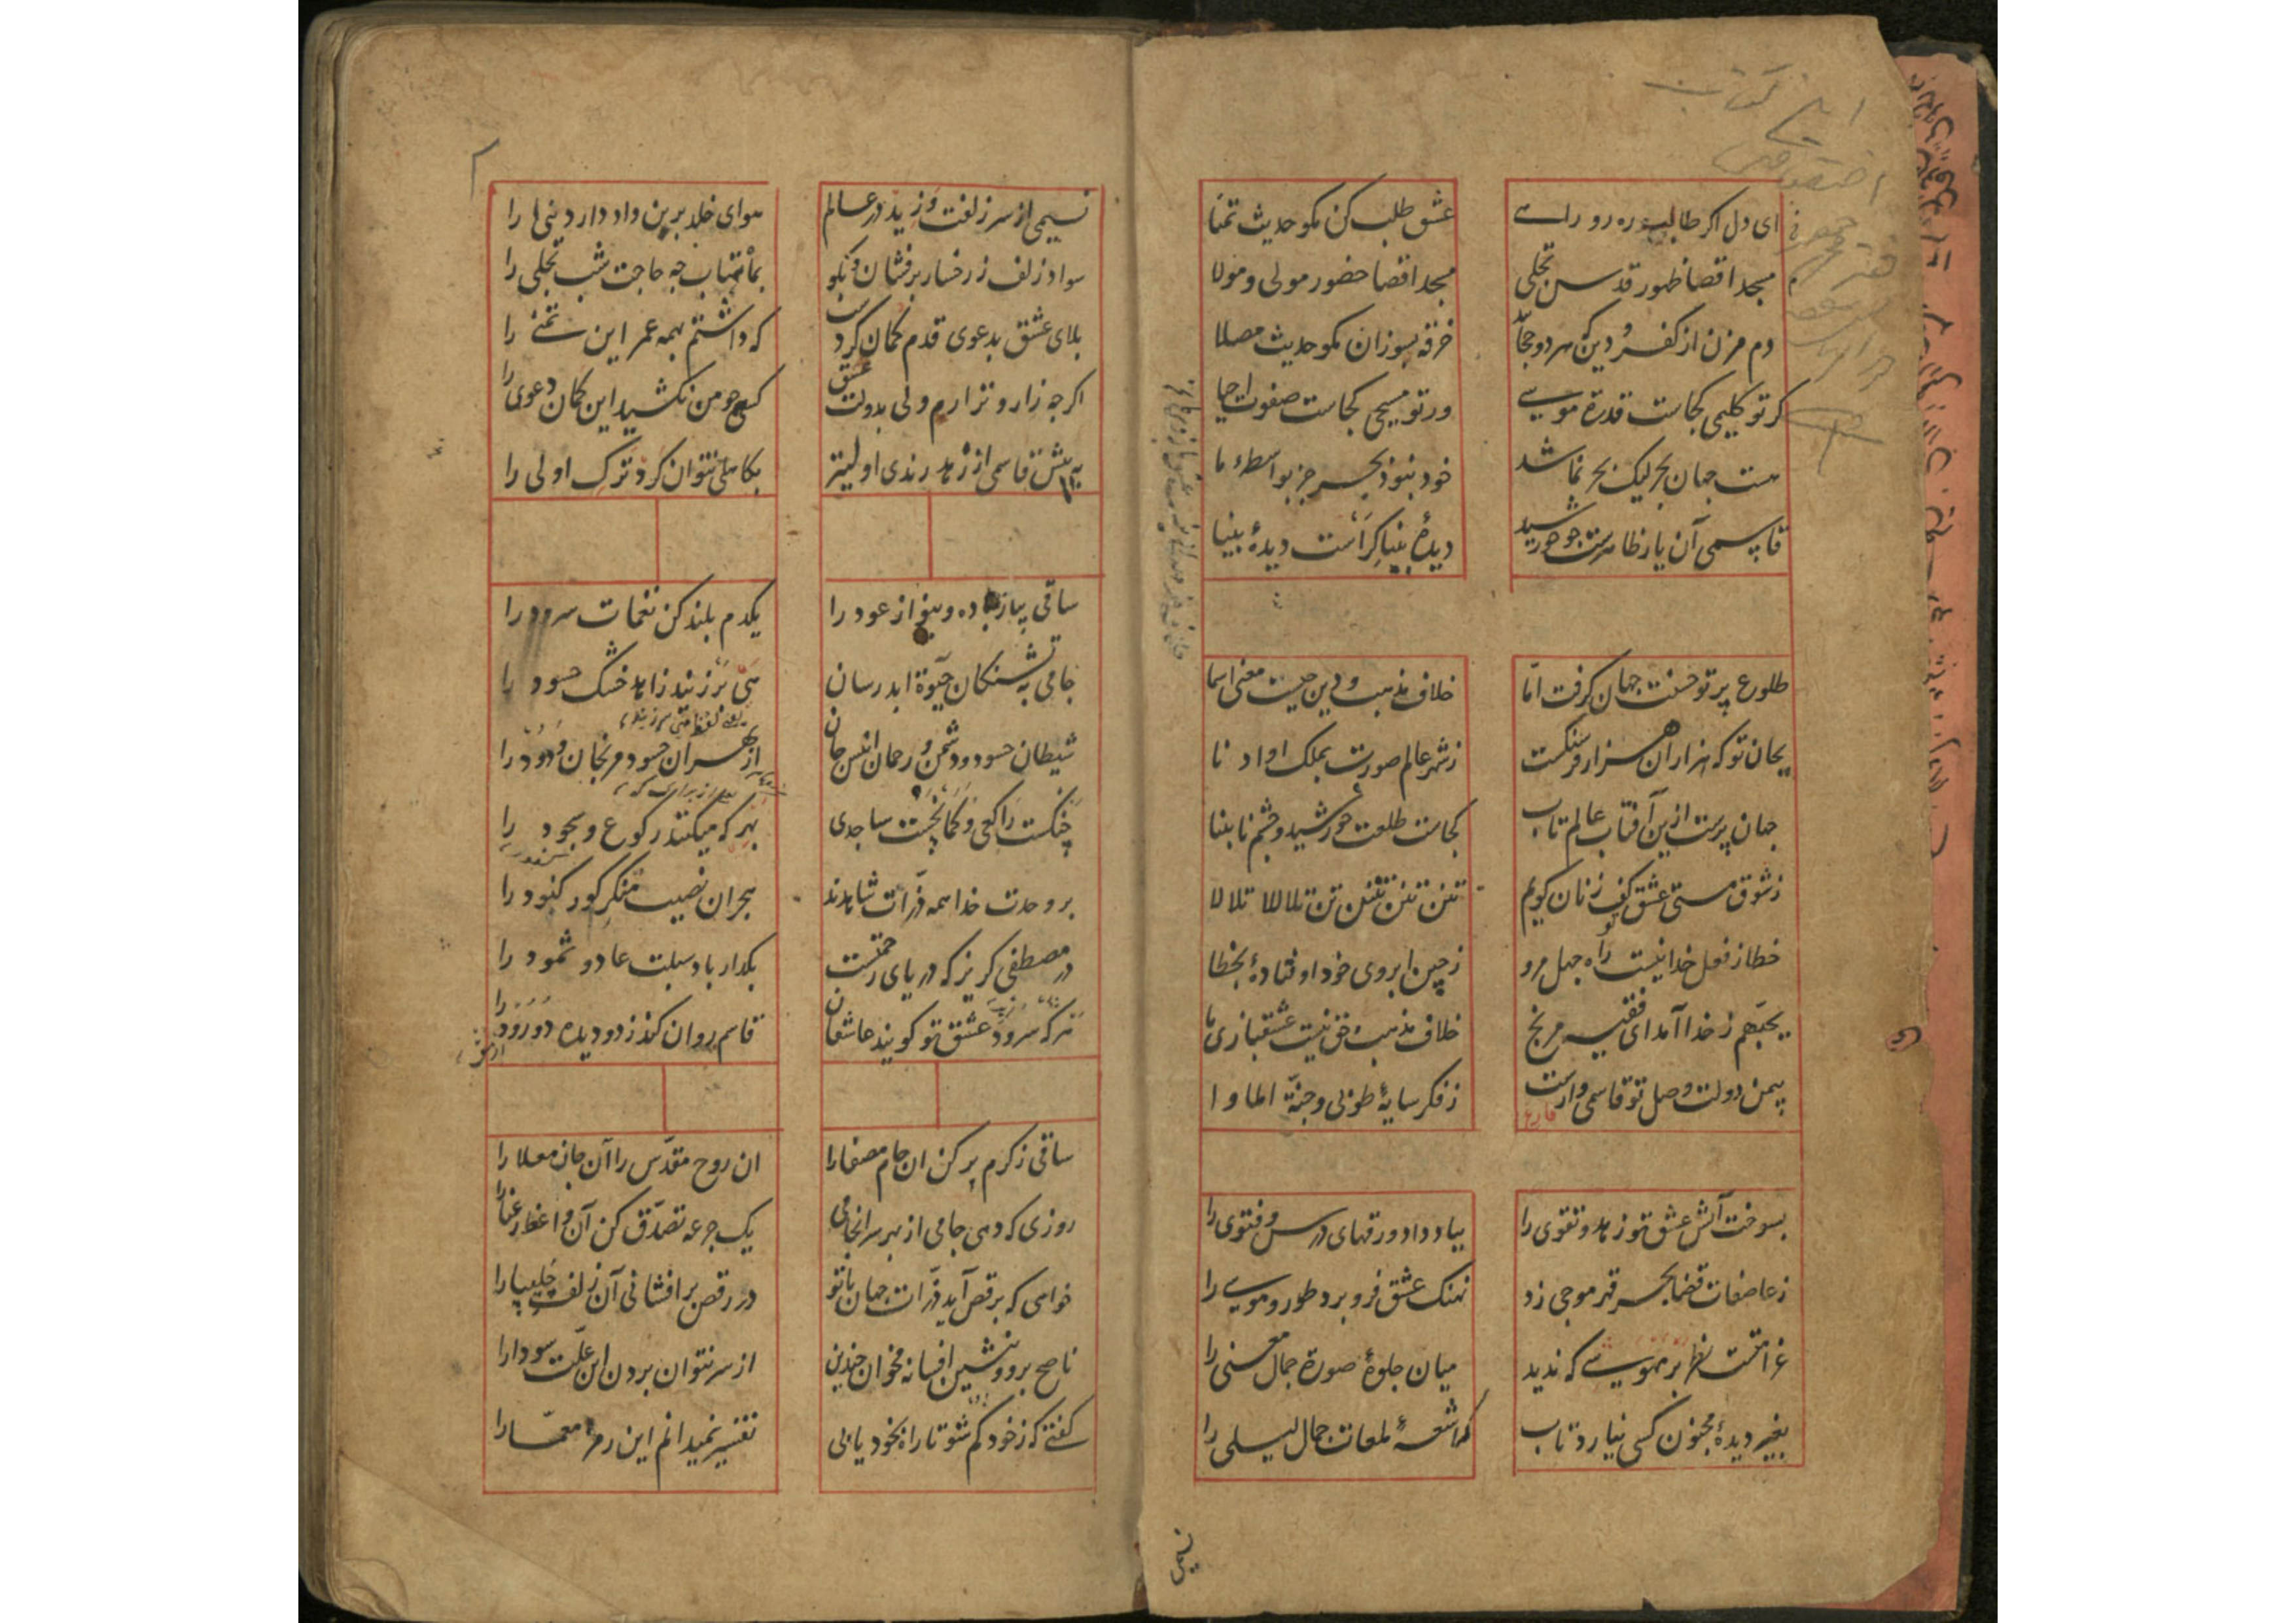 این کتاب
ای دل اگر طالبی ره رو راسے
عشق طلب کن مکو حدیث تمنا
مسجد اقصا ظهور قدس تجلی
مسجد اقصا حضور مولی و مولا
دم مزن از کفر و دین که هر دو حجاب
خرقه بسوزان مکو حدیث مصلا
کر تو کلیمی کجاست قدرة موسے
ور تو مسیحی کجاست صفوت احیا
هست جهان بحر لیک بحر نما شد
خود ننبود بحر جز بواسطهٔ ما
قاسمی آن یار ظاهرست جو خورشید
دیدهٔ بینا کراست دیدهٔ بینا
طلوع پرتو حسنت جهان کرفت امّا
خلاف مذهب و دین جیست معنی اسما
بجان تو که هزاران هزار فرسنکست
ز شهر عالم صورت بملک او ادنا
جهان پرست ازین آفتاب عالم تاب
کجاست طلعت خورشید و جشم نابینا
ز شوق مستی عشق تو کف زنان کویم
تنن تنن تنن تن تلاللا تلالا
خطا ز فعل خدا نیست راه جهل مرو
ز چین ابروی خود اوفتادهٔ بخطا
یحبّهم ز خدا آمد ای فقیه مرنج
خلاف مذهب حق نیست عشقبازی ما
بیمن دولت وصل تو قاسمی وارست
فارغ
ز فکر سایهٔ طوبی و جنّة الماوا
بسوخت آتش عشق تو زهد و تقوی را
بباد داد ورقهای درس و فتوی را
ز عاصفات قضا بحر قهر موجی زد
نهنک عشق فرو برد طور و موسے را
غرامتست نظر بر مهوسے که ندید
میان جلوهٔ صورة جمال معنی را
بغیر دیدهٔ مجنون کسی نیارد تاب
اشعهٔ لمعات جمال لیلی را
نسیمی
نسیمی از سر زلفت وزید در عالم
هوای خلد برین داد دار دنیی را
سواد زلف ز رخسار برفشان و بکو
بماهتاب جه حاجت شب تجلی را
بلای عشق بدعوی قدم کمان کرد
که داشتم همه عمر این تمنی را
اکر جه زار و نزارم ولی بدولت عشق
کسی جو من نکشید این کمان دعوی را
به پیش قاسمی از زهد رندی اولیتر
بکاهلی نتوان کرد ترک اولی را
ساقی بیار باده و بنواز عود را
یکدم بلند کن نغمات سرود را
جامی به تشنکان حیوة ابد رسان
حیّ بر زند زاهد خشک حسود را
شیطان حسود و دشمن و رحمان انیس جان
از بهر آن حسود مرنجان ودود را
چنکست راکعی و کمانچست ساجدی
بهر که میکنند رکوع و سجود را
بر وحدت خدا همه ذرّات شاهدند
هجران نصیب منکر کور کنود را
در مصطفی کریز که دریای رحمتست
بکذار باد سبلت عاد و ثمود را
هر که سرود عشق تو کویند عاشقان
قاسم روان کند ز دو دیده دو رود را
ساقی ز کرم پر کن ان جام مصفا را
ان روح مقدّس را آن جان معلا را
روزی که دهی جامی از بهر سرانجامی
یک جرعه تصدّق کن آن واعظ رعنا را
خواهی که برقص آید ذرّات جهان با تو
در رقص برافشانی آن زلف چلیپا را
ناصح برو و بنشین افسانه مخوان چندین
از سر نتوان بردن این علّت سودا را
کفتے که ز خود کم شو تا راه بخود یابی
تفسیر نمیدانم این رمز معمّا را